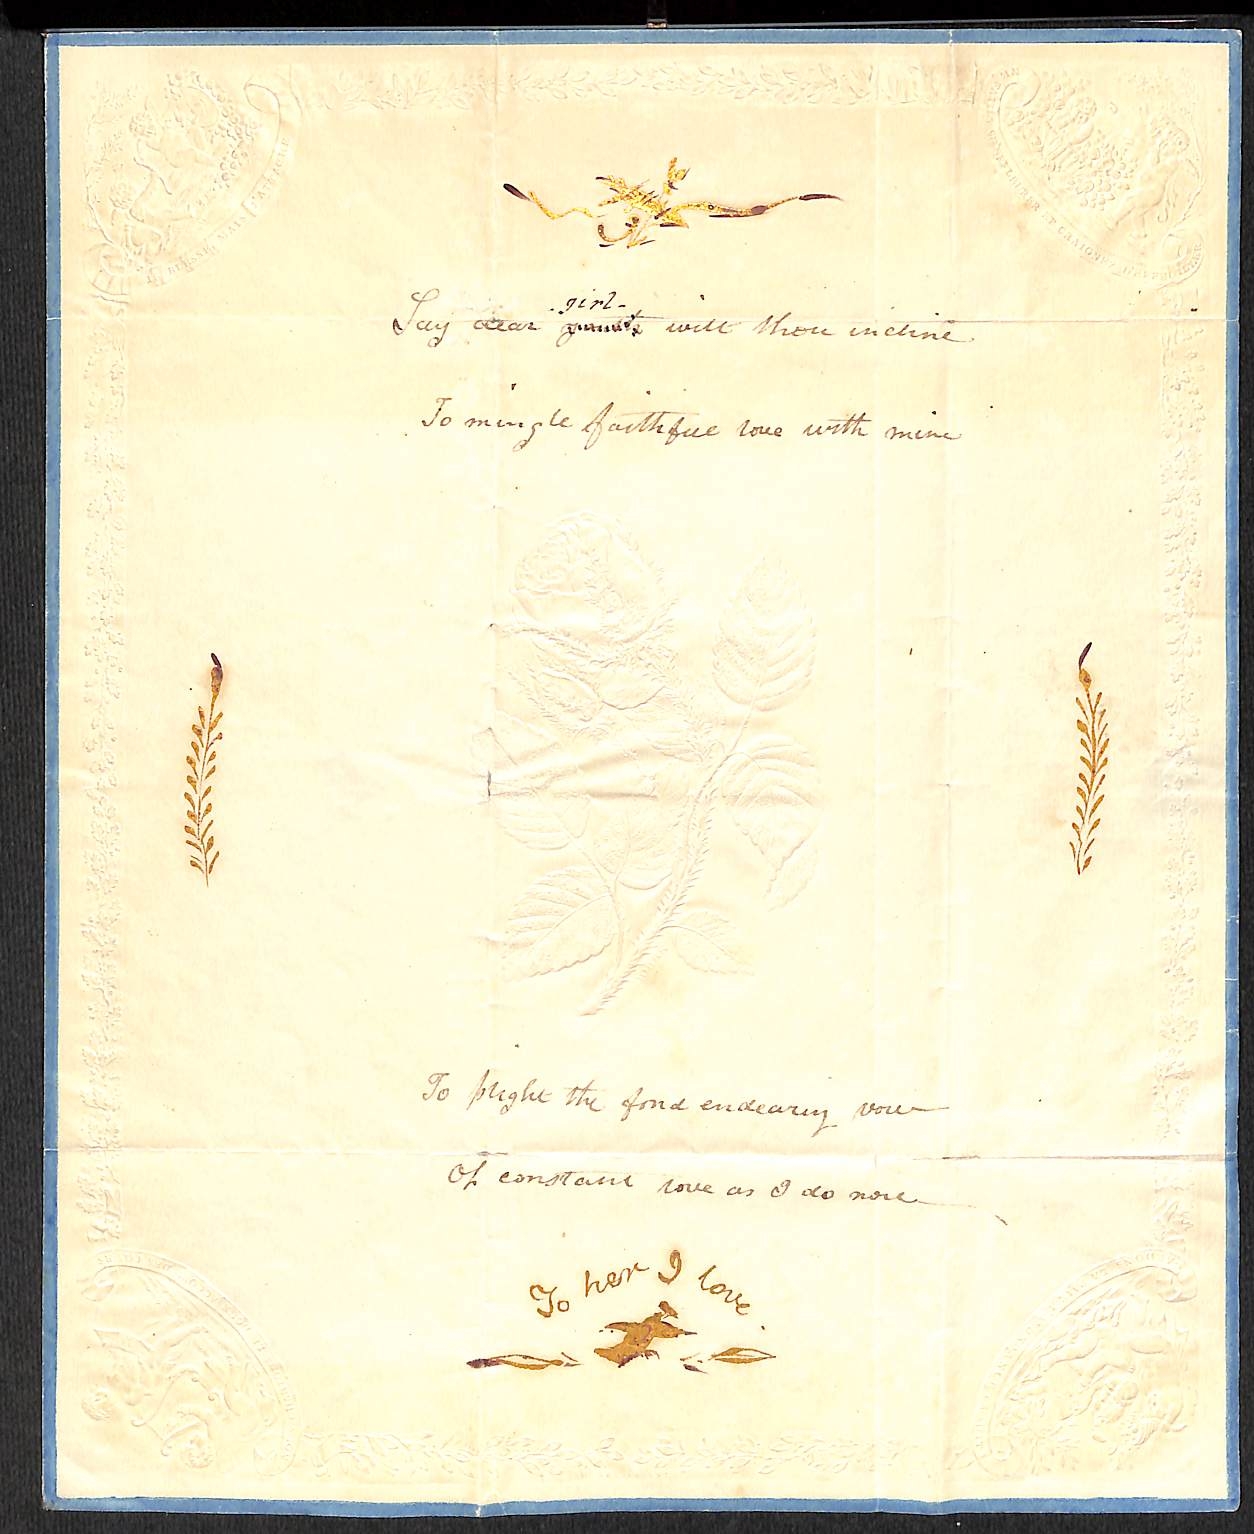 girl-
Say dear wilt thou incline
To mingle faithful love with mine
To plight the fond endearing vow
Of constant love as I do now
To her I love.